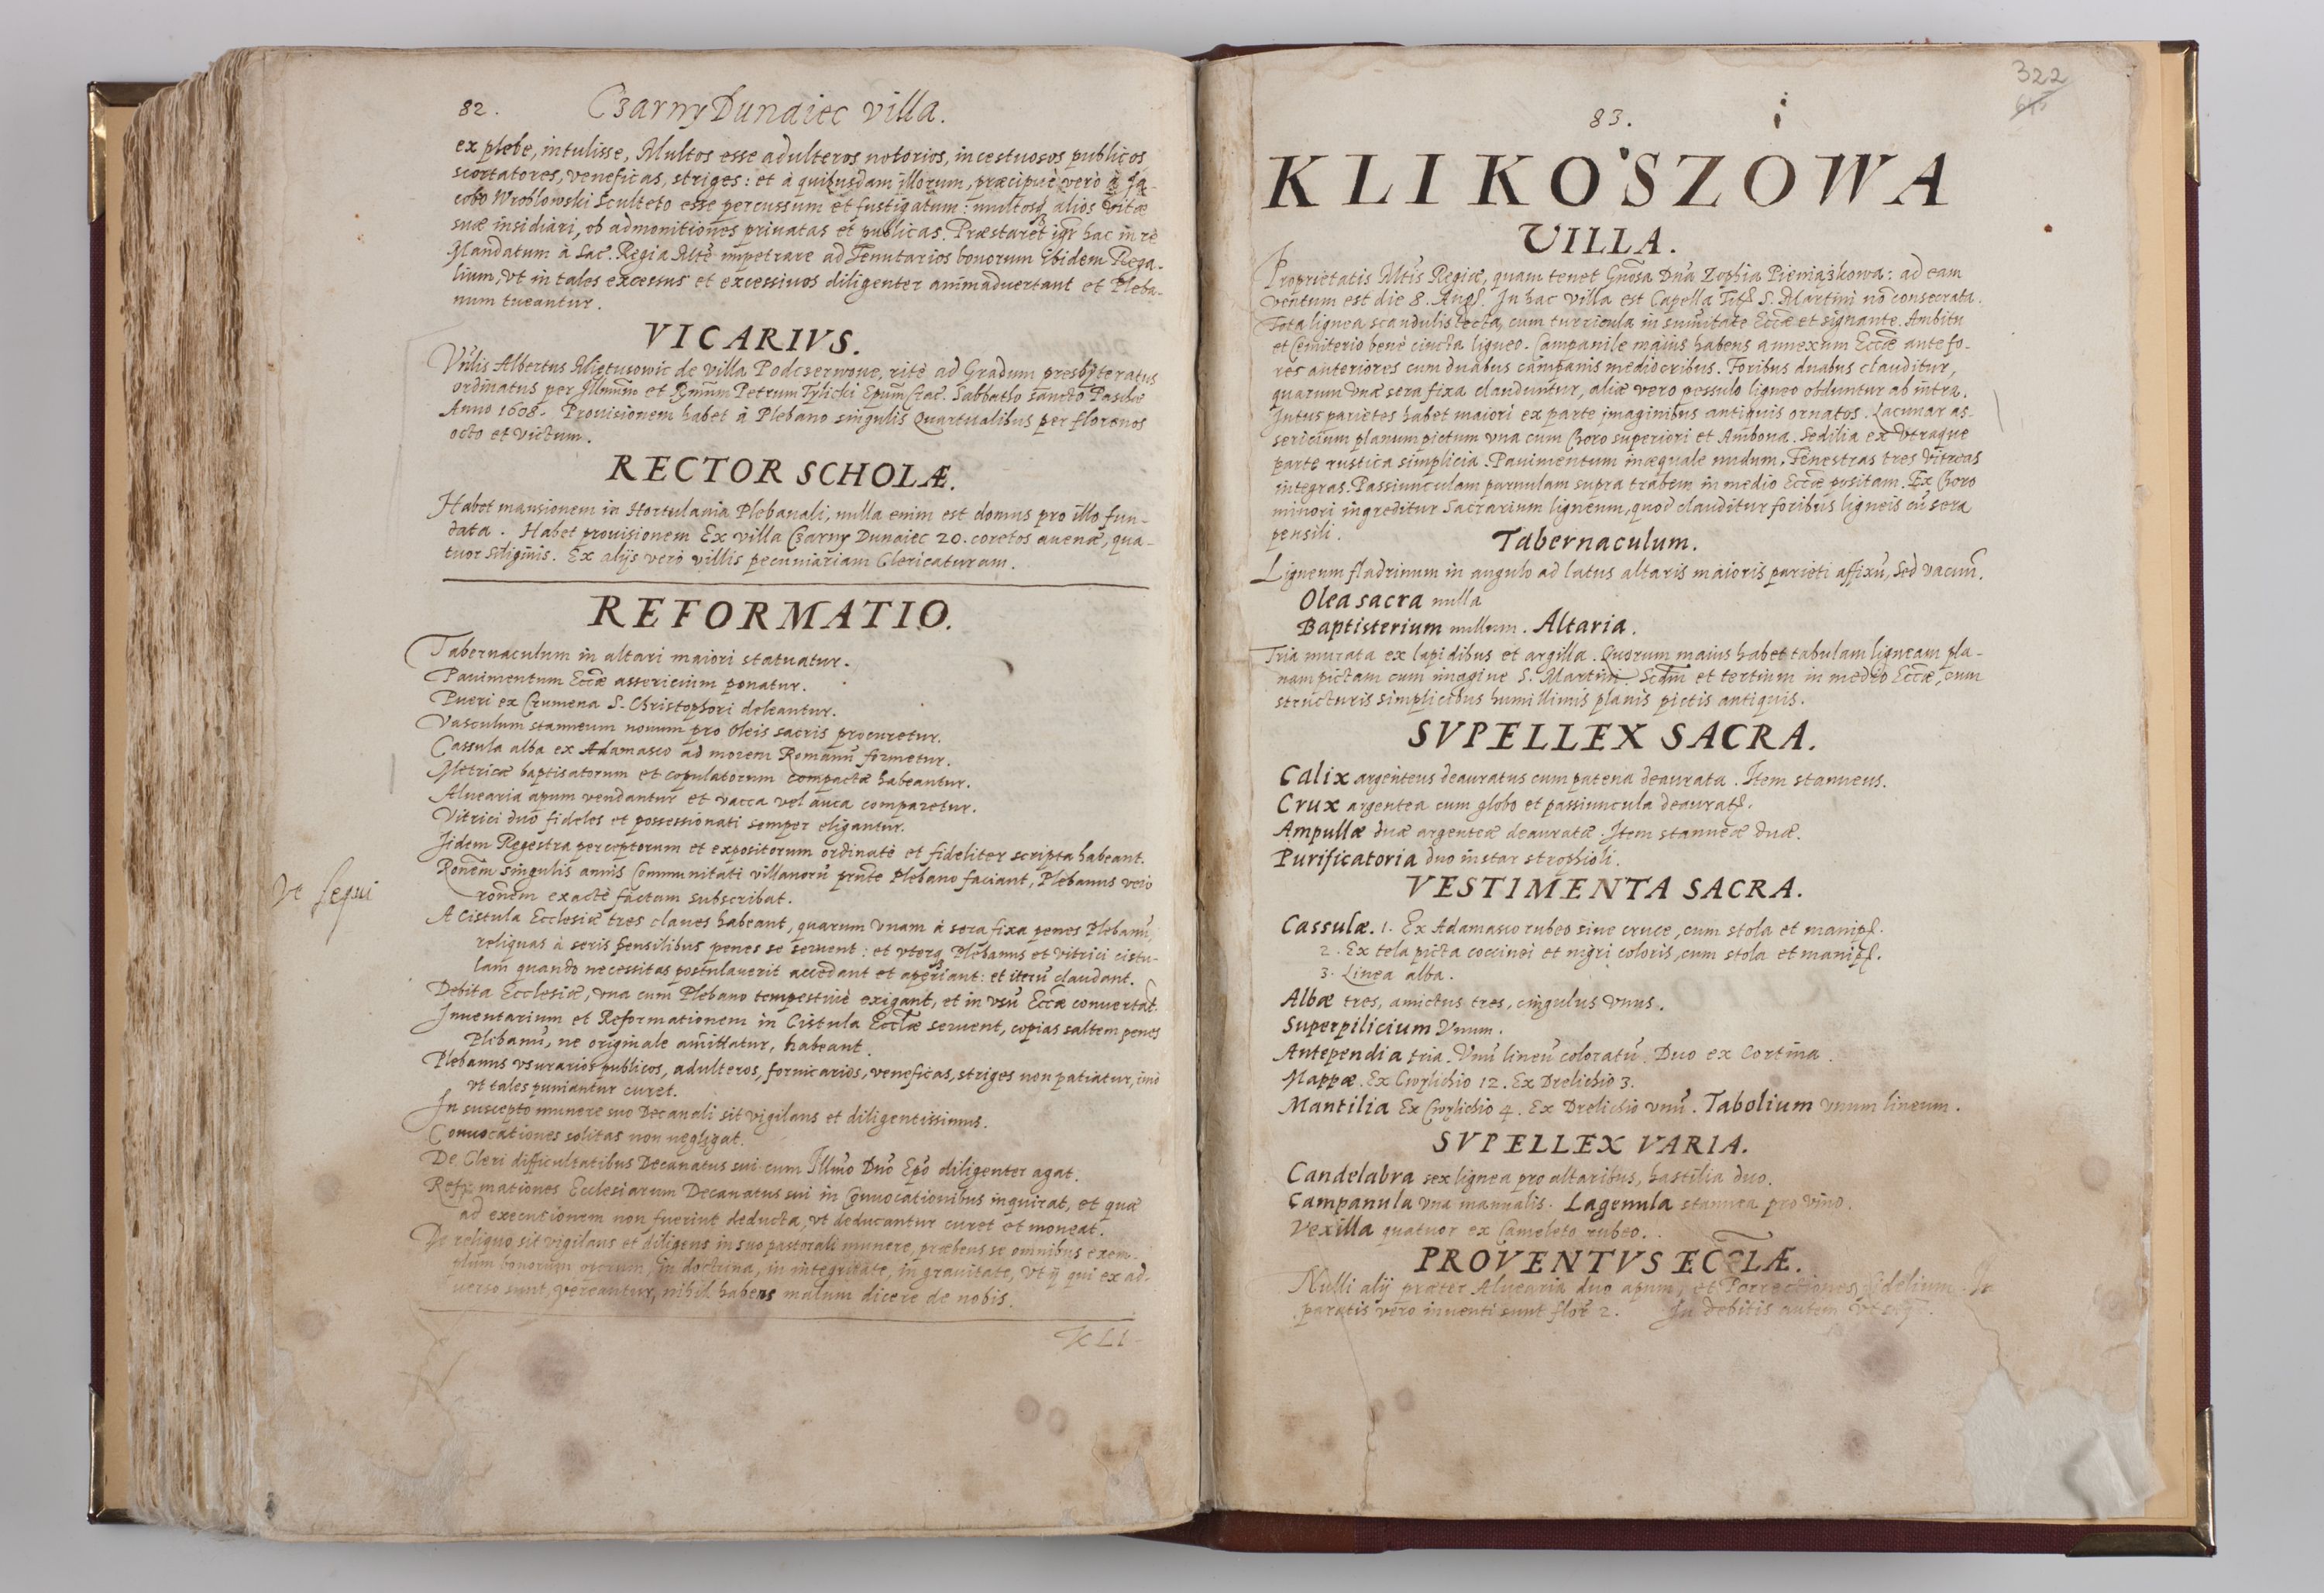 82. Czarny Dunaiec villa.
ex plebe, intulisse, Multos esse adulteros notorios, incestuosos publicos
scortatores, veneficas, striges: et à quibusdam illorum, præcipuè verò à Ja-
cobo Wroblowski Sculteto esse percussum et fustigatum: multosq alios vitæ
suæ insidiari, ob admonitiones priuatas et publicas. Præstaret igr hac in rè
Mandatum à Sac. Regia Mtè impetrare ad Tenutarios bonorum ibidem Rega-
lium, vt in tales excessus et excessiuos diligenter animaduertant et Pleba-
num tueantur.
VICARIVS.
Vnlis Albertus Mietusowic de villa Podczerwone, ritè ad Gradum presbyteratus
ordinatus per Illmum et Rmum Petrum Tylicki Epum Crac. Sabbatho sancto Paschæ
Anno 1608. Prouisionem habet à Plebano singulis Quartualibus per florenos
octo et victum.
RECTOR SCHOLÆ.
Habet mansionem in Hortulania Plebanali, nulla enim est domus pro illo fun-
data. Habet prouisionem Ex villa Czarny Dunaiec 20. coretos auenæ, qua-
tuor siliginis. Ex alijs verò villis pecuniariam Clericaturam.
REFORMATIO.
Tabernaculum in altari maiori statuatur.
Pauimentum Eccæ assericium ponatur.
Pueri ex Crumena S. Christophori deleantur.
Vasculum stanneum nouum pro Oleis sacris procuretur.
Cassula alba ex Adamasco ad morem Romanū formetur.
Metricæ baptisatorum et copulatorum compactæ habeantur.
Aluearia apum vendantur et vacca vel auca comparetur.
Vitrici duo fideles et possessionati semper eligantur.
Iidem Regestra perceptorum et expositorum ordinatè et fideliter scripta habeant.
Ronem singulis annis Communitati villanorū prnte Plebano faciant, Plebanus verò
ronem exactè factam subscribat.
A Cistula Ecclesiæ tres claues habeant, quarum vnam à sera fixa penes Plebanū,
reliquas à seris pensilibus penes se seruent: et vterq Plebanus et vitrici cistu-
lam quando necessitas postulauerit accedant et aperiant: et iterū claudant.
Debita Ecclesiæ, vna cum Plebano tempestiuè exigant, et in vsū Eccæ conuertāt.
Inuentarium et Reformationem in Cistula Ecclæ seruent, copias saltem penes
Plebanū, ne originale amittatur, habeant.
Plebanus vsurarios publicos, adulteros, fornicarios, veneficas, striges non patiatur, imò
vt tales puniantur curet.
In suscepto munere suo Decanali sit vigilans et diligentissimus.
Conuocationes solitas non negligat.
De Cleri difficultatibus Decanatus sui cum Illmo Dno Epo diligenter agat.
Reformationes Ecclesiarum Decanatus sui in Conuocationibus inquirat, et quæ
ad executionem non fuerint deducta, vt deducantur curet et moneat.
De reliquo sit vigilans et diligens in suo pastorali munere, præbens se omnibus exem-
plum bonorum operum, in doctrina, in integritate, in grauitate, vt ij qui ex ad-
uerso sunt, vereantur, nihil habens malum dicere de nobis.
KLI-
322
83.
KLIKOSZOWA
VILLA.
Proprietatis Mtis Regiæ, quam tenet Gnosa Dna Zophia Pieniążkowa: ad eam
ventum est die 8. Aug. In hac villa est Capella Tit. S. Martini nō consecrata.
Tota lignea scandulis tecta, cum turricula in sumitate Eccæ et signante. Ambitu
et Cemiterio benè cincta ligneo. Campanile maius habens annexum Eccæ ante fo-
res anteriores cum duabus campanis mediocribus. Foribus duabus clauditur,
quarum vnæ sera fixa clauduntur, aliæ vero pessulo ligneo obduntur ab intra.
Intus parietes habet maiori ex parte imaginibus antiquis ornatos. Lacunar as-
sericium planum pictum vna cum Choro superiori et Ambona. Sedilia ex vtraque
parte rustica simplicia. Pauimentum inæquale nudum. Fenestras tres vitreas
integras. Passiunculam paruulam supra trabem in medio Eccæ positam. Ex Choro
minori ingreditur Sacrarium ligneum, quod clauditur foribus ligneis cū sera
pensili.
Tabernaculum.
Ligneum fladrinum in angulo ad latus altaris maioris parieti affixū, sed vacuū.
Olea sacra nulla
Baptisterium nullum. Altaria.
Tria murata ex lapidibus et argilla. Quorum maius habet tabulam ligneam pla-
nam pictam cum imagine S. Martini. Scdm et tertium in medio Eccæ, cum
structuris simplicibus humillimis planis pictis antiquis.
SVPELLEX SACRA.
Calix argenteus deauratus cum patena deaurata. Item stanneus.
Crux argentea cum globo et passiuncula deaurat.
Ampullæ duæ argenteæ deauratæ. Item stanneæ duæ.
Purificatoria duo instar strophioli.
VESTIMENTA SACRA.
Cassulæ. 1. Ex Adamasco rubeo sine cruce, cum stola et manip.
2. Ex tela picta coccinei et nigri coloris, cum stola et manip.
3. Linea alba.
Albæ tres, amictus tres, cingulus vnus.
Superpilicium Vnum.
Antependia tria. Vnū lineū coloratū. Duo ex Cortina.
Mappæ. Ex Cwylichio 12. Ex Drelichio 3.
Mantilia Ex Cwylichio 4. Ex Drelichio vnū. Tabolium vnum lineum.
SVPELLEX VARIA.
Candelabra sex lignea pro altaribus, hastilia duo.
Campanula vna manualis. Lagenula stannea pro vino.
Vexilla quatuor ex Cameleto rubeo.
PROVENTVS ECCLÆ.
Nulli alij præter Aluearia duo apum, et Porrectiones fidelium. In
paratis vero inuenti sunt flor 2. In debitis autem